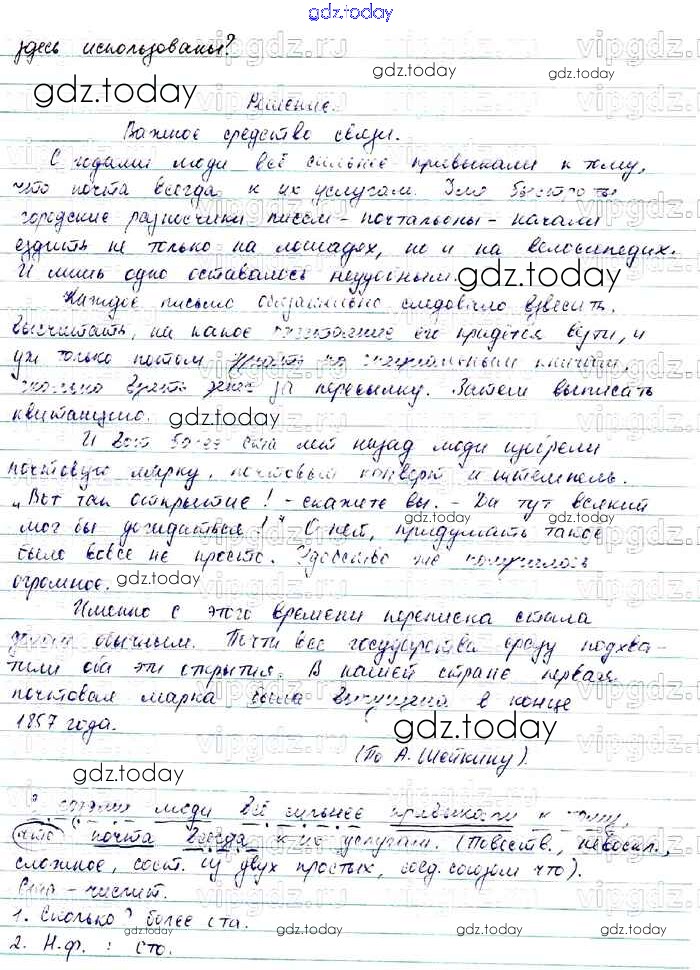 gdz.today
здесь использованы?
gdz.today
gdz.today
gdz.today
Решение.
Важное средство связи.
С годами люди всё сильнее привыкали к тому,
что почта всегда к их услугам. Уже быстро
городские разносчики писем - почтальоны - начали
ездить не только на лошадях, но и на велосипедах.
И лишь одно оставалось неудобным.
gdz.today
Каждое письмо обязательно следовало взвесить,
высчитать, на какое расстояние его придётся везти, и
уж только потом
сколько взять за пересылку. Затем выписать
квитанцию.
gdz.today
И вот более ста лет назад люди изобрели
почтовую марку, почтовый конверт и штемпель.
„Вот так открытие! - скажете вы. - Да тут всякий
мог бы догадаться!" О нет, придумать такое
gdz.today
gdz.today
было вовсе не просто. Удобство же получилось
огромное.
gdz.today
Именно с этого времени переписка стала
делом обычным. Почти все государства сразу подхва-
тили эти открытия. В нашей стране первая
почтовая марка была выпущена в конце
1857 года.
gdz.today
(По А. Шейкину).
gdz.today
С годами люди всё сильнее привыкали к тому,
что почта всегда к их услугам. (Повеств., невоскл.,
сложное, сост. из двух простых, соед. союзом что).
Ста - числит.
1. Сколько? более ста.
2. Н.ф. : сто.
gdz.today
gdz.today
gdz.today
gdz.today